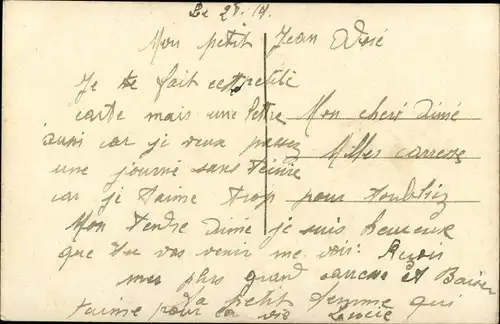 Le 28. 14.
Mon petit Jean Adoré
Je te fait cette petite
carte mais une lettre
aussi car je veux passez
une journé sans t'écrire
car je t'aime trop pour t'oubliez
Mon cheri aimé
Milles carresse
Mon tendre aimé je suis heureuse
que tu vas venir me voir. Reçois
mes plus grand carresse et Baiser
ta petit femme qui
t'aime pour la vie Lucie